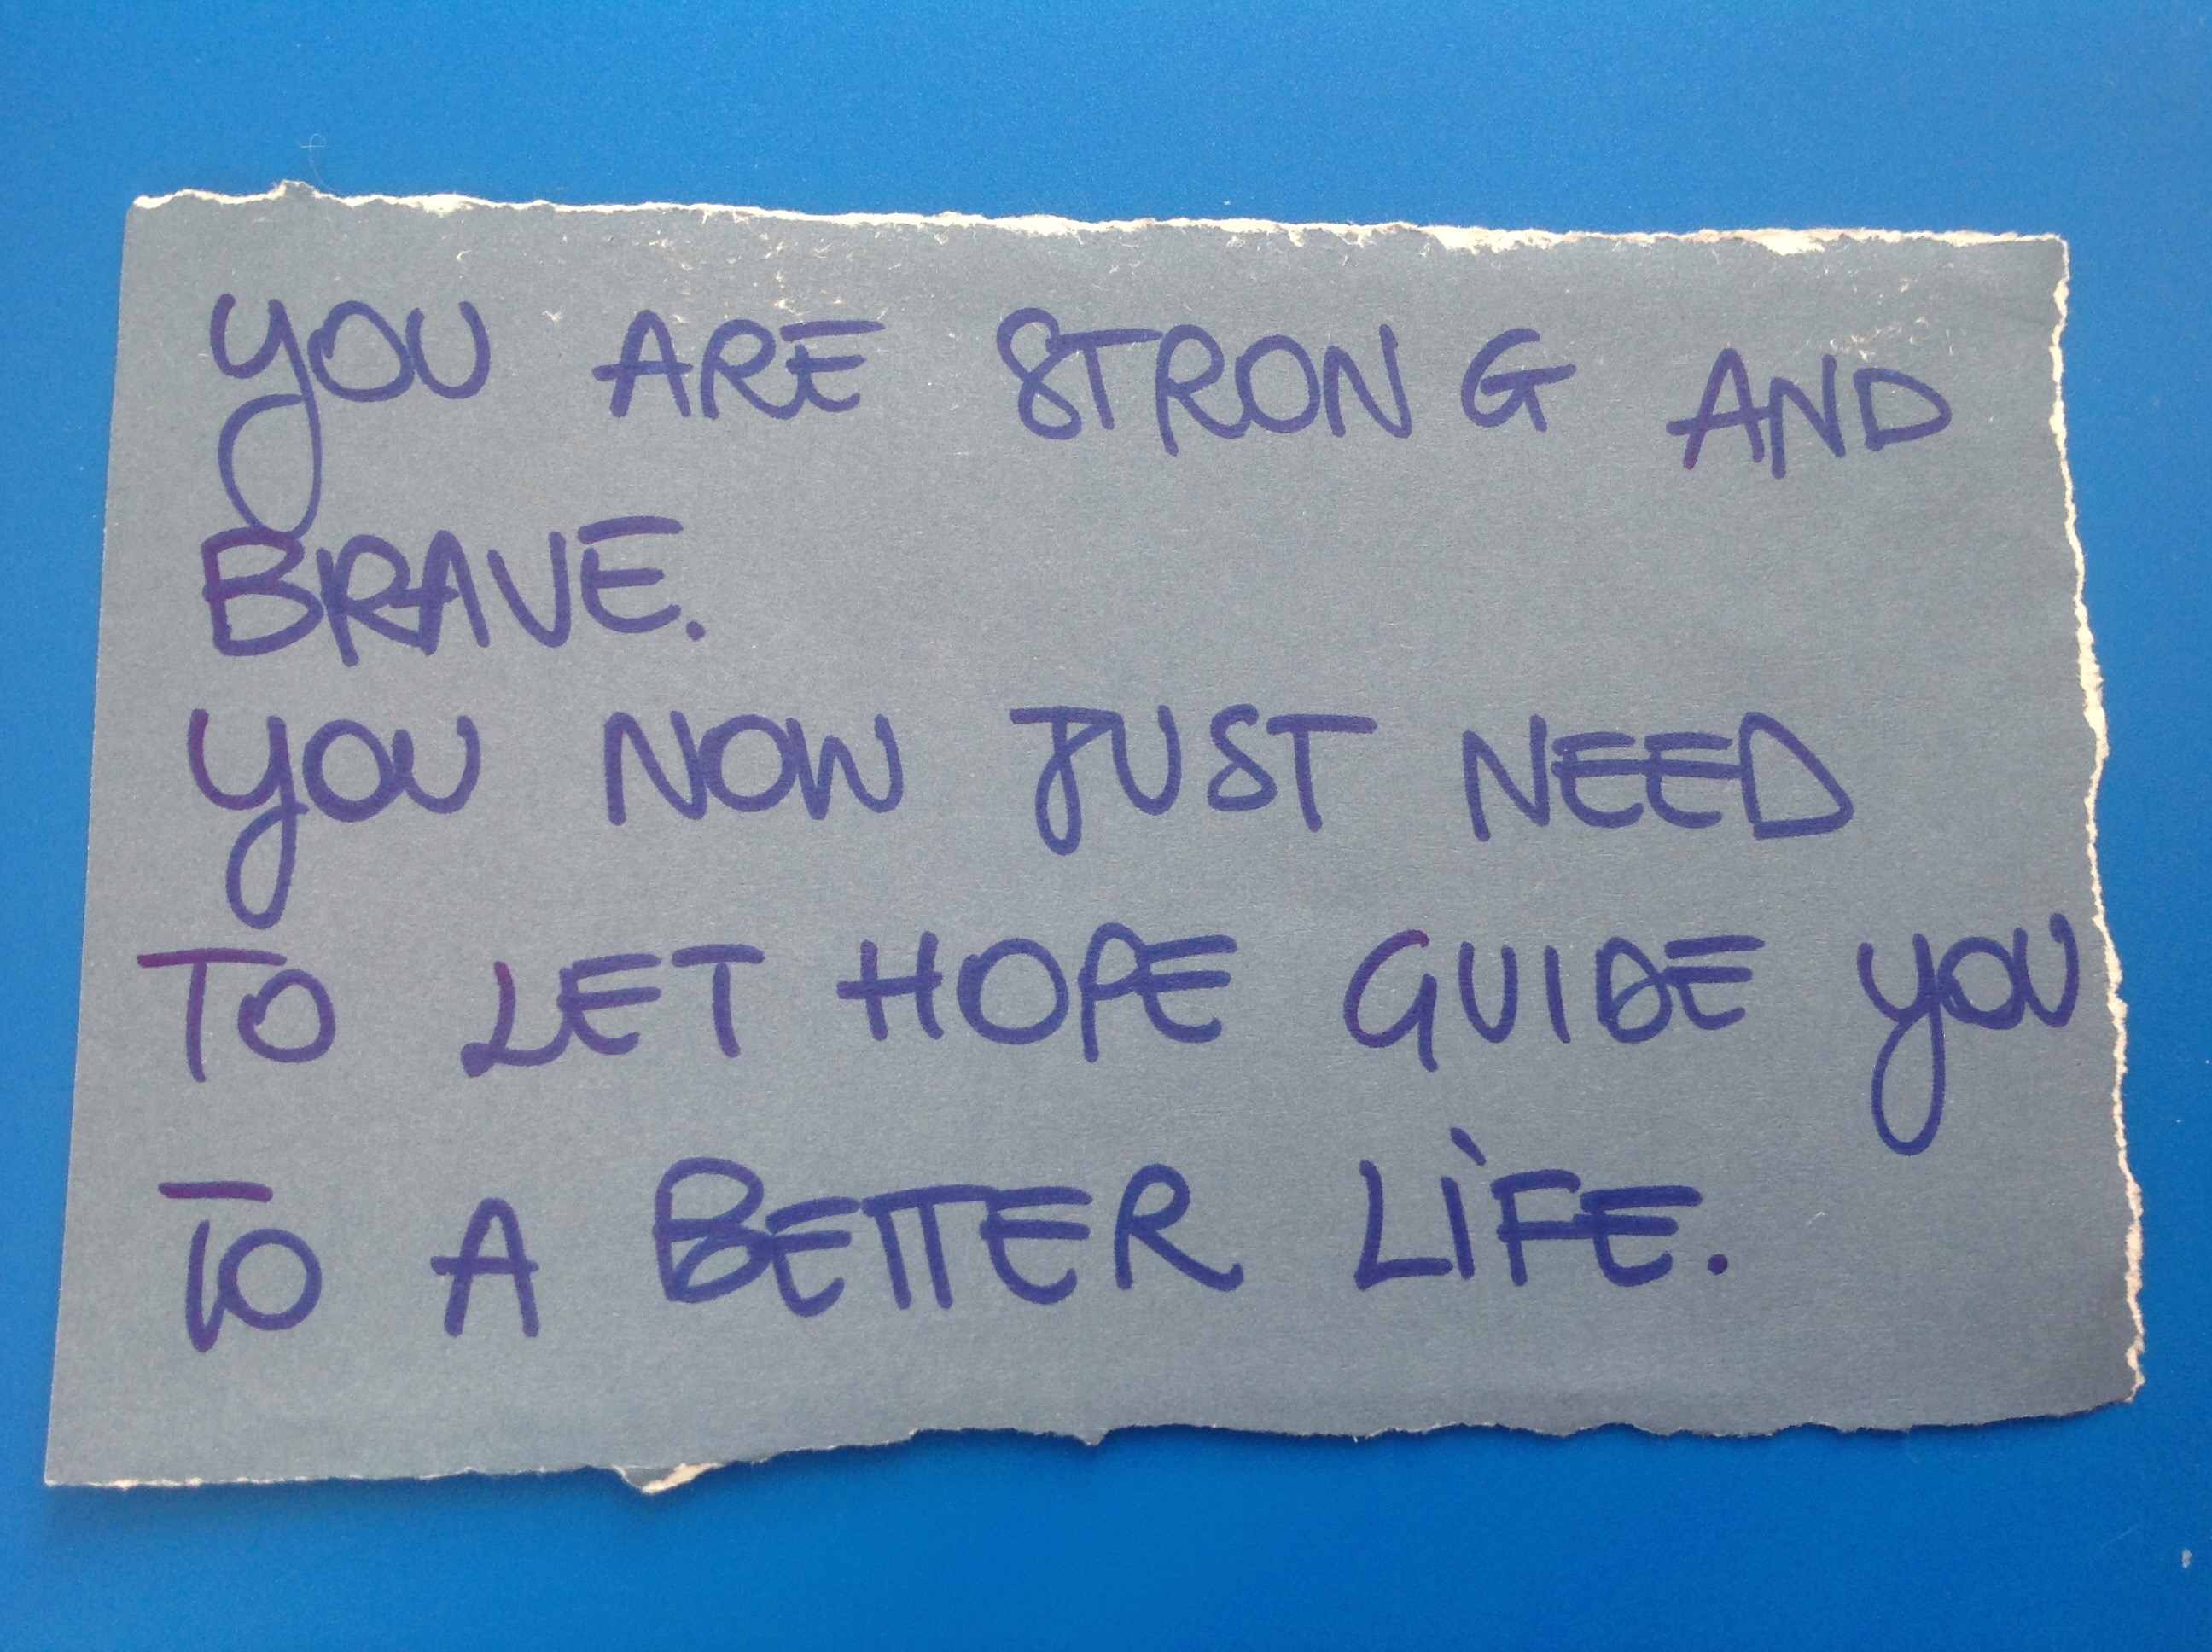 YOU ARE STRONG AND
BRAVE.
YOU NOW JUST NEED
TO LET HOPE GUIDE YOU
TO A BETTER LIFE.